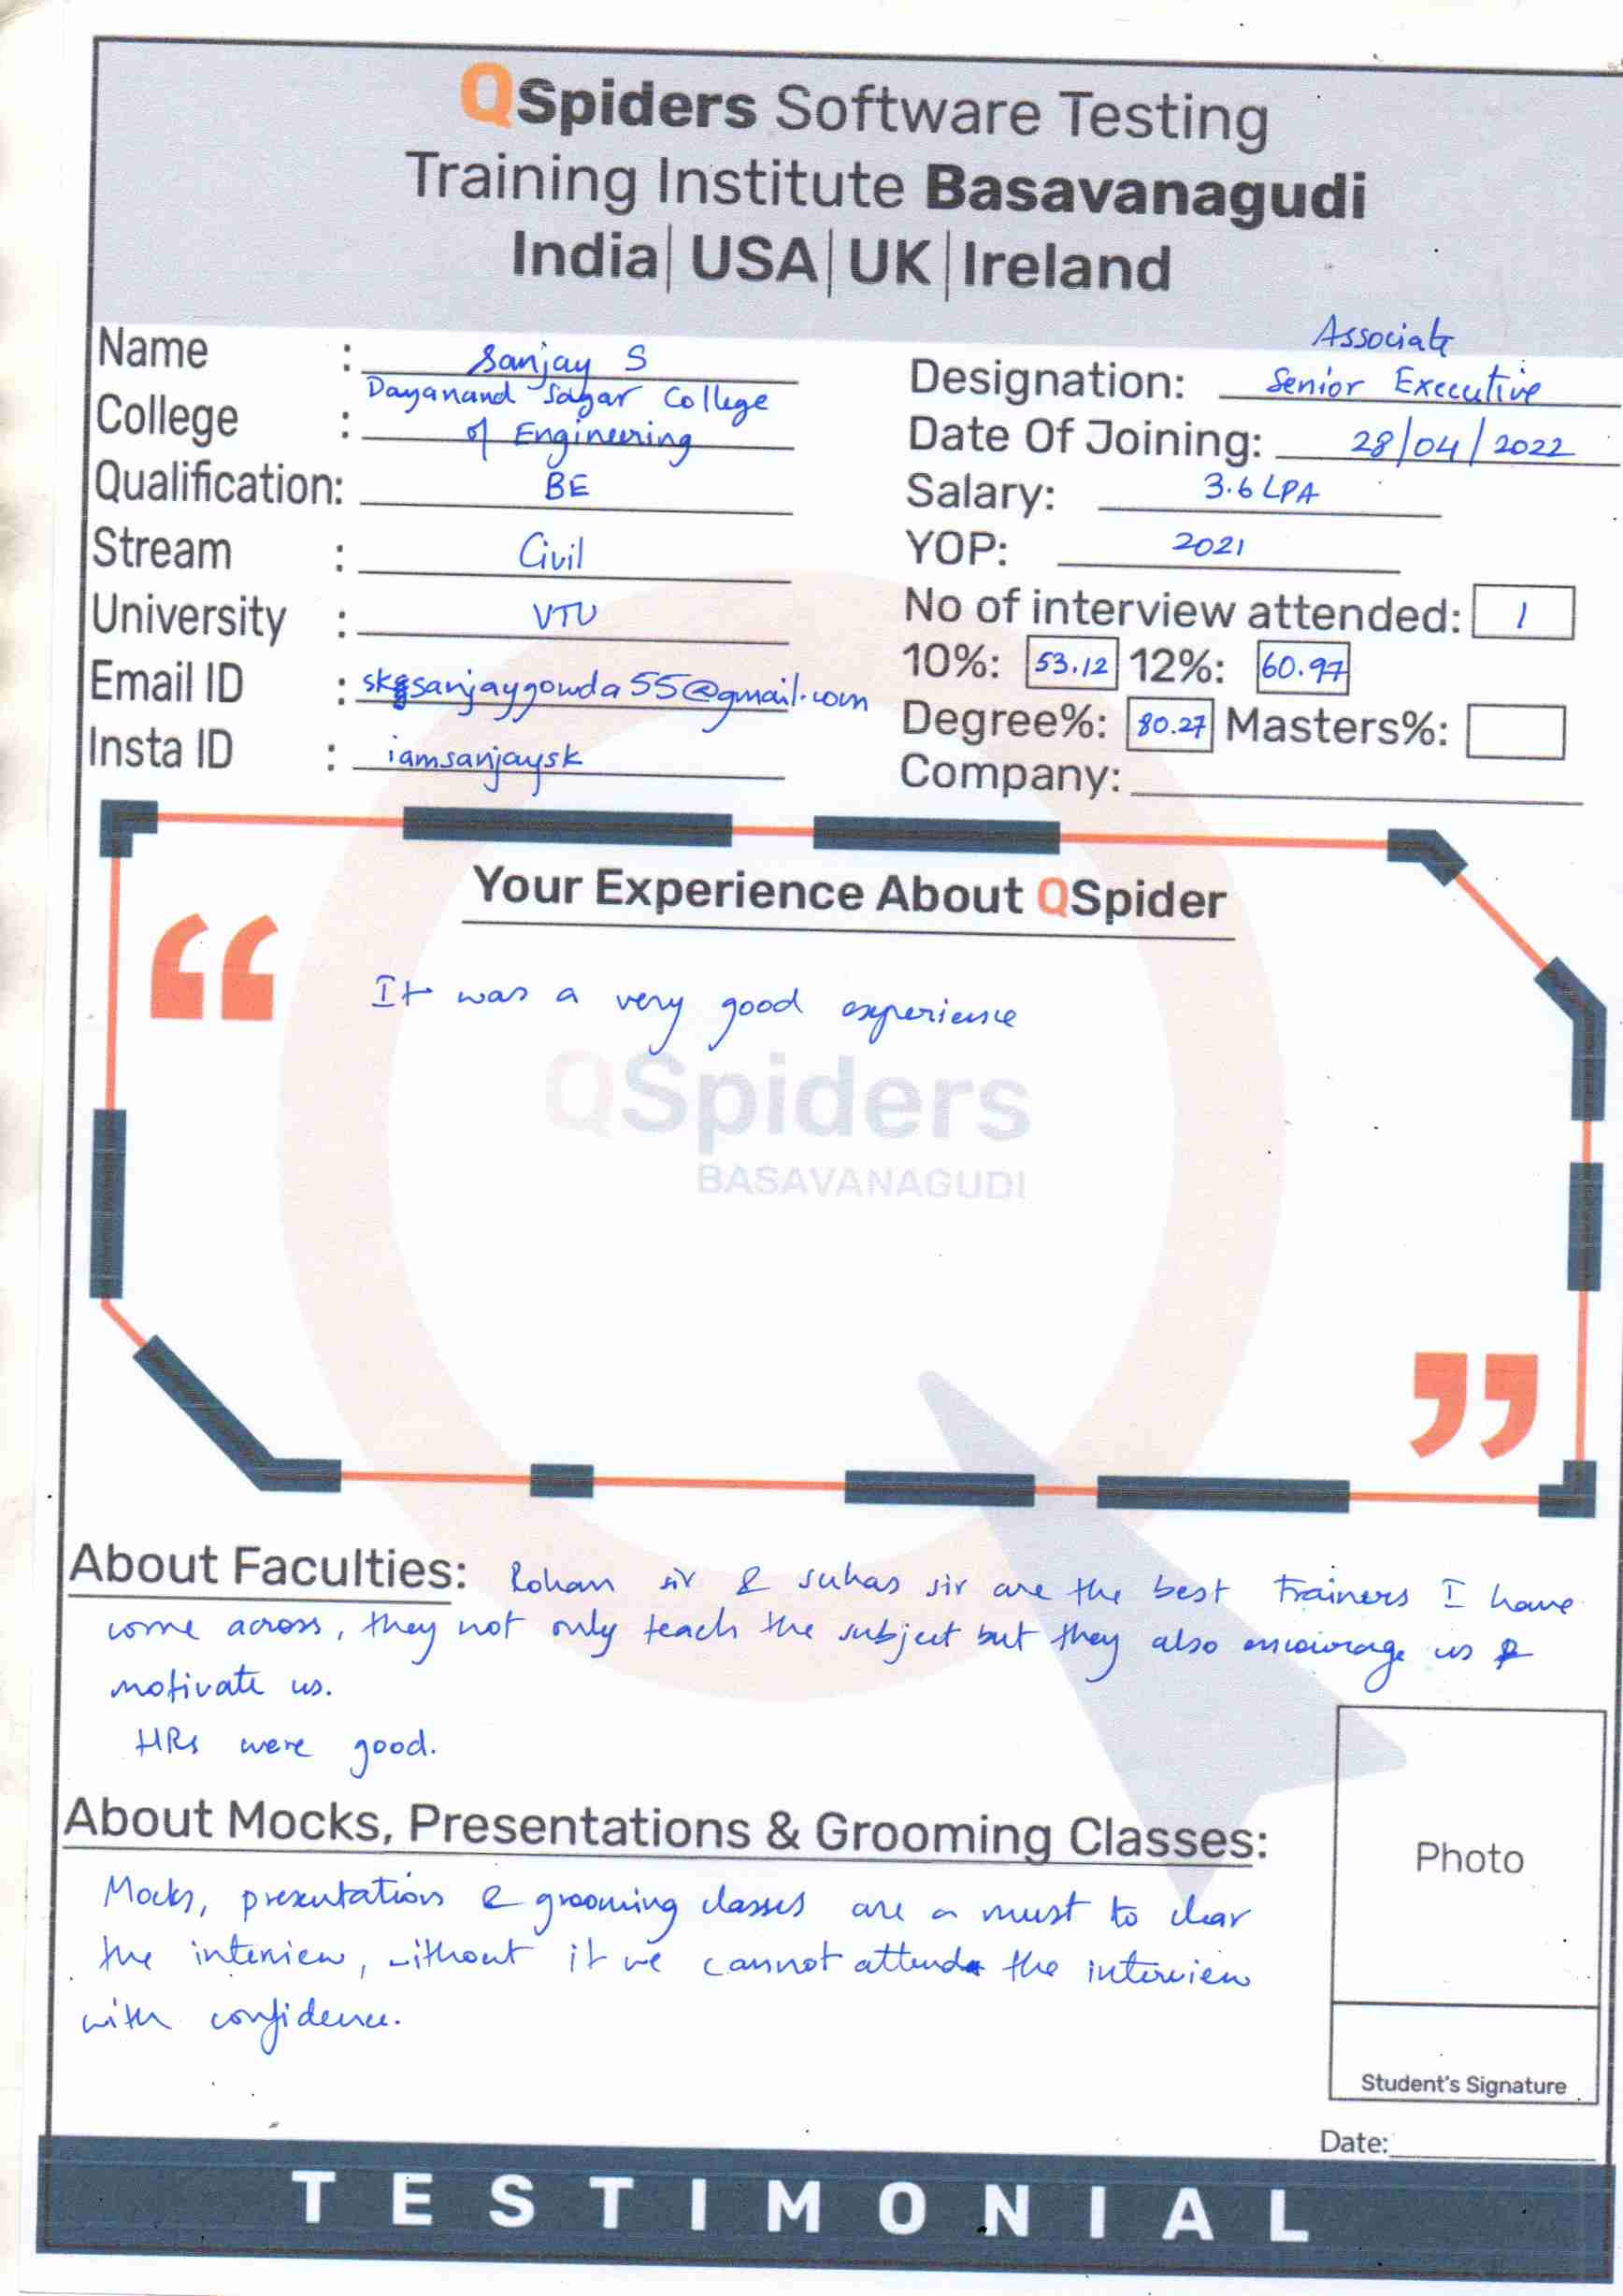 QSpiders Software Testing
Training Institute Basavanagudi
India| USA| UK| Ireland
Name : Sanjay S
College : Dayanand Sagar College
of Engineering
Qualification: BE
Stream : Civil
University : VTU
Email ID : sanjaygowda55@gmail.com
Insta ID : iamsanjaysk
Associate
Designation: Senior Executive
Date Of Joining: 28/04/2022
Salary: 3.6 LPA
YOP: 2021
No of interview attended: 1
10%: 53.12 12%: 60.97
Degree%: 80.27 Masters%:
Company:
Your Experience About QSpider
“
It was a very good experience
QSpiders
BASAVANAGUDI
”
About Faculties: Rohan sir & suhas sir are the best trainers I have
come across, they not only teach the subject but they also encourage us &
motivate us.
HRs were good.
About Mocks, Presentations & Grooming Classes:
Mocks, presentations & grooming classes are a must to clear
the interview, without it we cannot attend the interview
with confidence.
Photo
Student's Signature
Date:
TESTIMONIAL